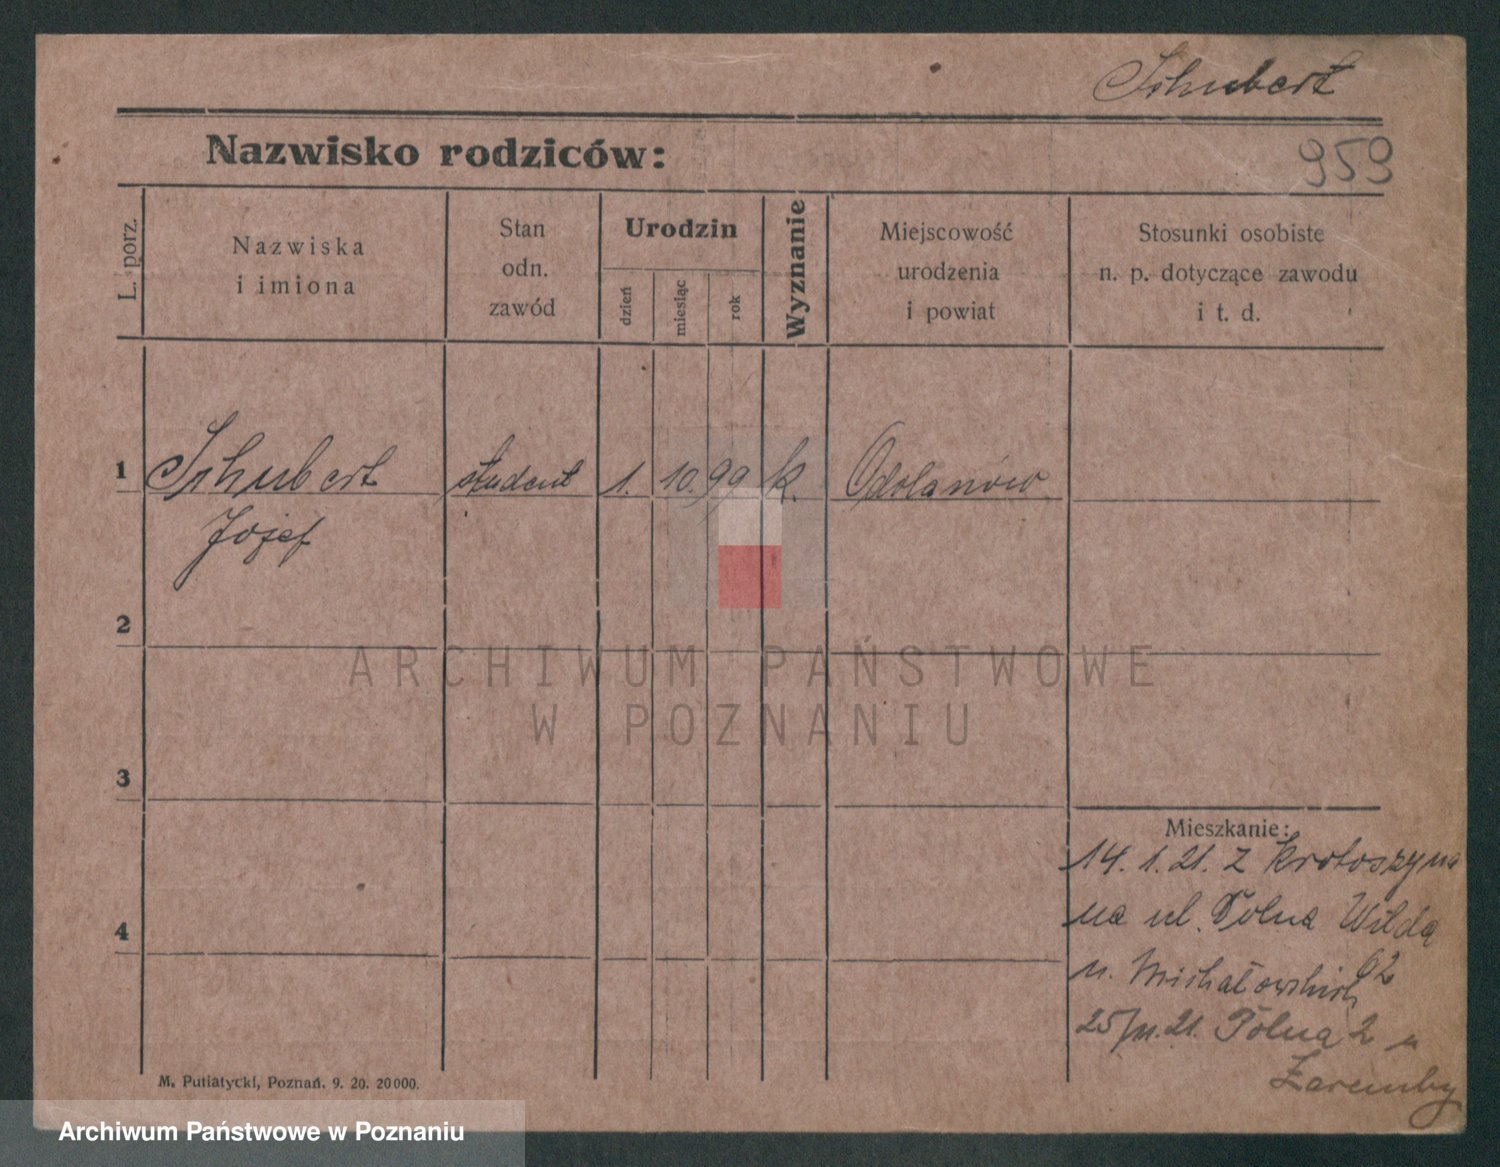 Schubert
Nazwisko rodziców:
959
L. porz.
Nazwiska
i imiona
Stan
odn.
zawód
Urodzin
dzień
miesiąc
rok
Wyznanie
Miejscowość
urodzenia
i powiat
Stosunki osobiste
n. p. dotyczące zawodu
i t. d.
1 Schubert student 1. 10. 99 k. Odolanów
Józef
2
ARCHIWUM PAŃSTWOWE
W POZNANIU
3
Mieszkanie:
14. 1. 21. z Krotoszyna
na ul. Polna Wilda
62
u. Michałowskich
4
25/11.21. Polna 2 u
Zaremby
M. Putiatycki, Poznań. 9. 20. 20000.
Archiwum Państwowe w Poznaniu